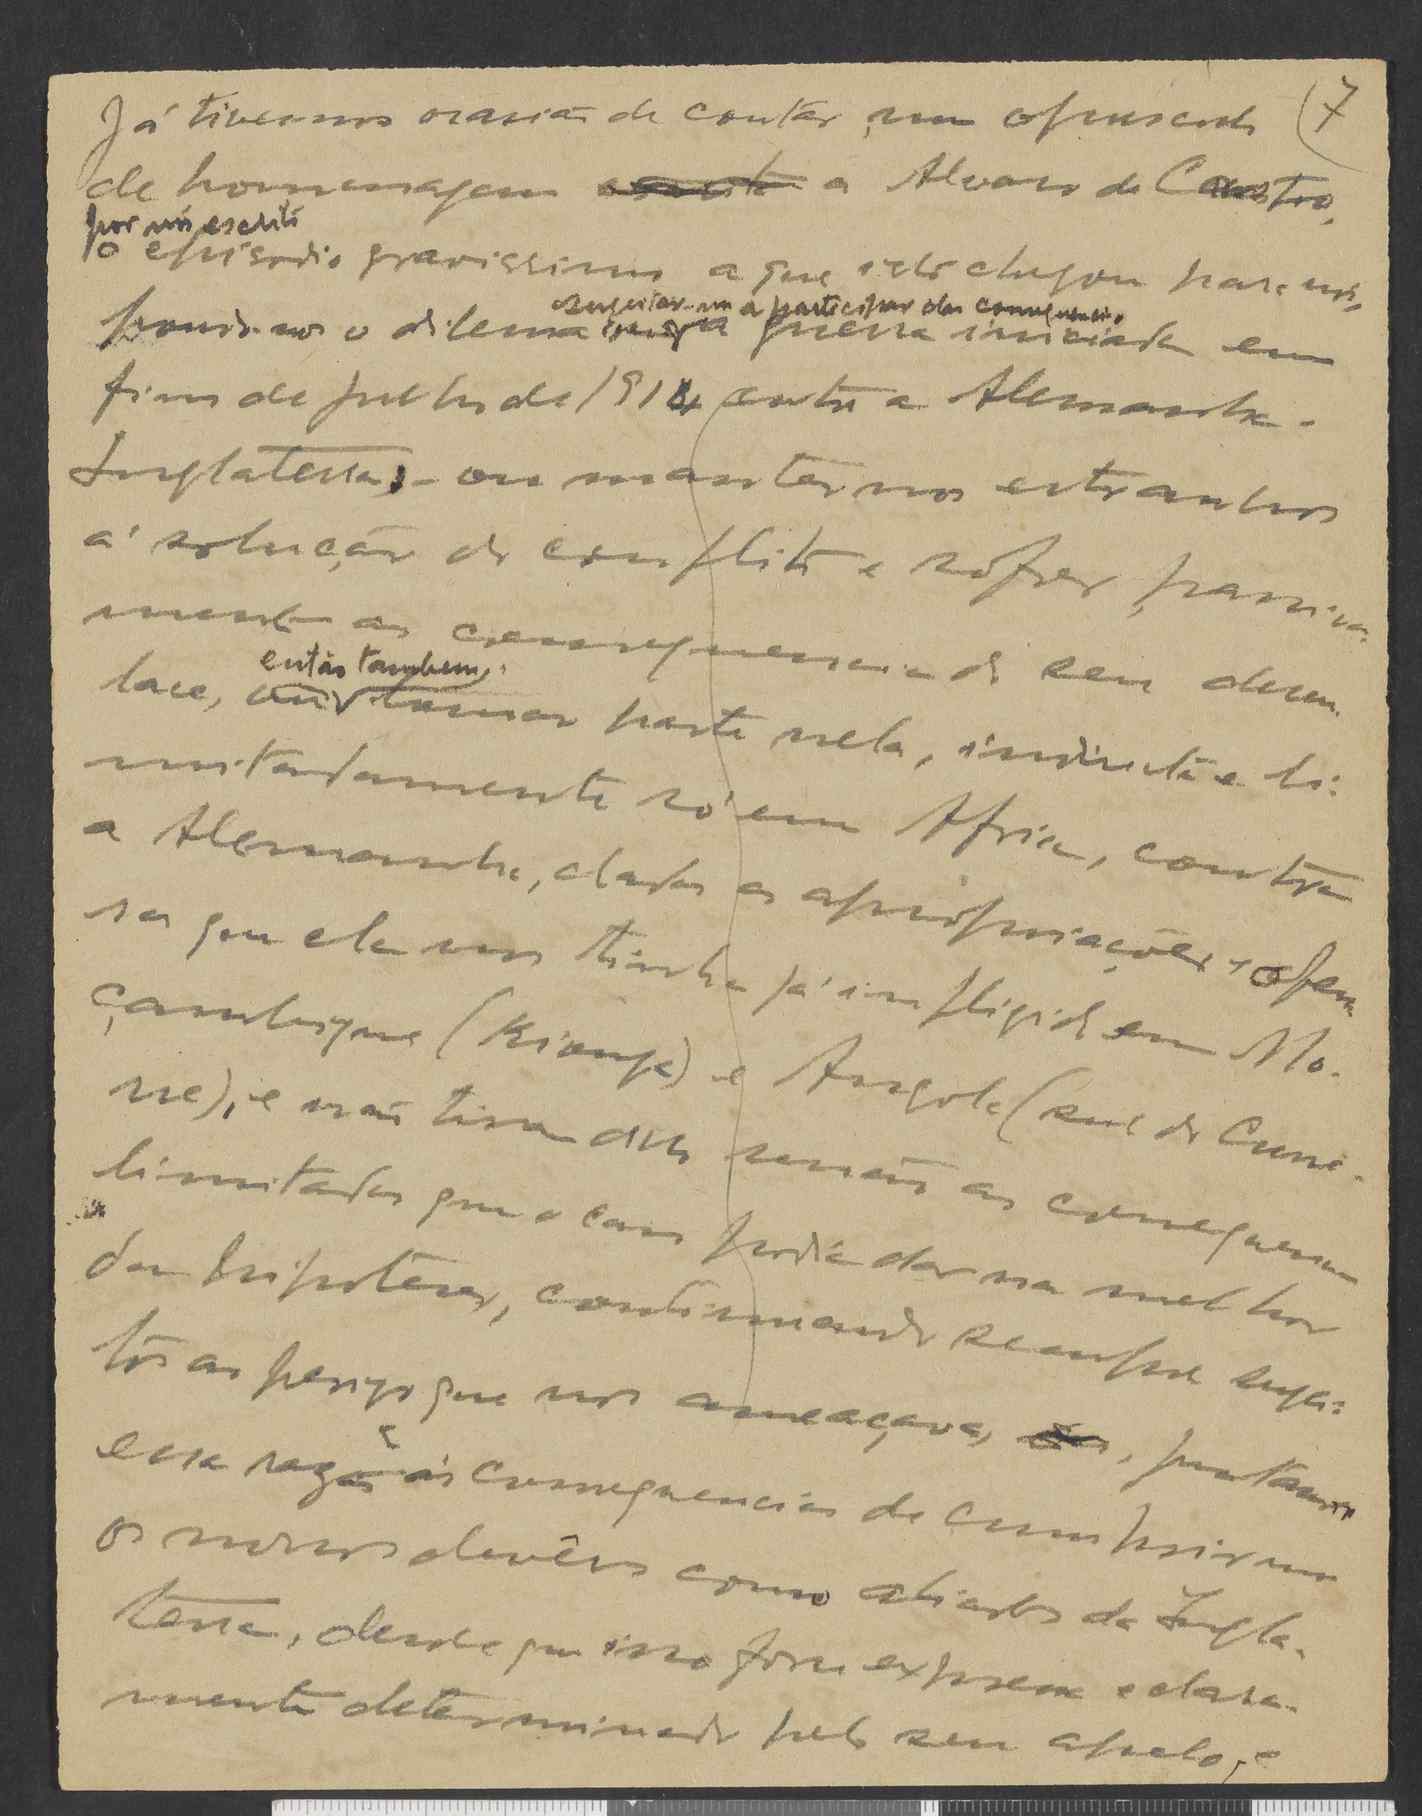 7
Já tivemos ocasião de contar, num opusculo
de homenagem a Alvaro de Castro,
por nós escrito
o episodio gravissimo a que isto chegou para nós,
sugeitar-nos a participar das consequencias
pondo-nos o dilema a guerra iniciada em
fins de julho de 1914 entre a Alemanha -
Inglaterra, - ou manter-nos estranhos
á solução do conflito e sofrer, passiva-
mente as consequencias do seu desen-
então tambem,
lace, ou tomar parte nela, indirecta e li-
mitadamente só em Africa, contra
a Alemanha, dadas as apropriações e ofen-
sas que ela nos tinha já infligido em Mo-
çambique (Kionga) e Angola (sul do Cune-
ne), e não tirar disto senão as consequencias
limitadas que o caso podia dar na melhor
das hipoteses, continuando sempre sugei-
tos ao perigo que nos ameaçava, juntamos
essa razão ás consequencias de cumprirmos
os nossos devêres como aliados da Ingla-
terra, desde que isso fosse expressa e clara-
mente determinado pelo seu apelo, e